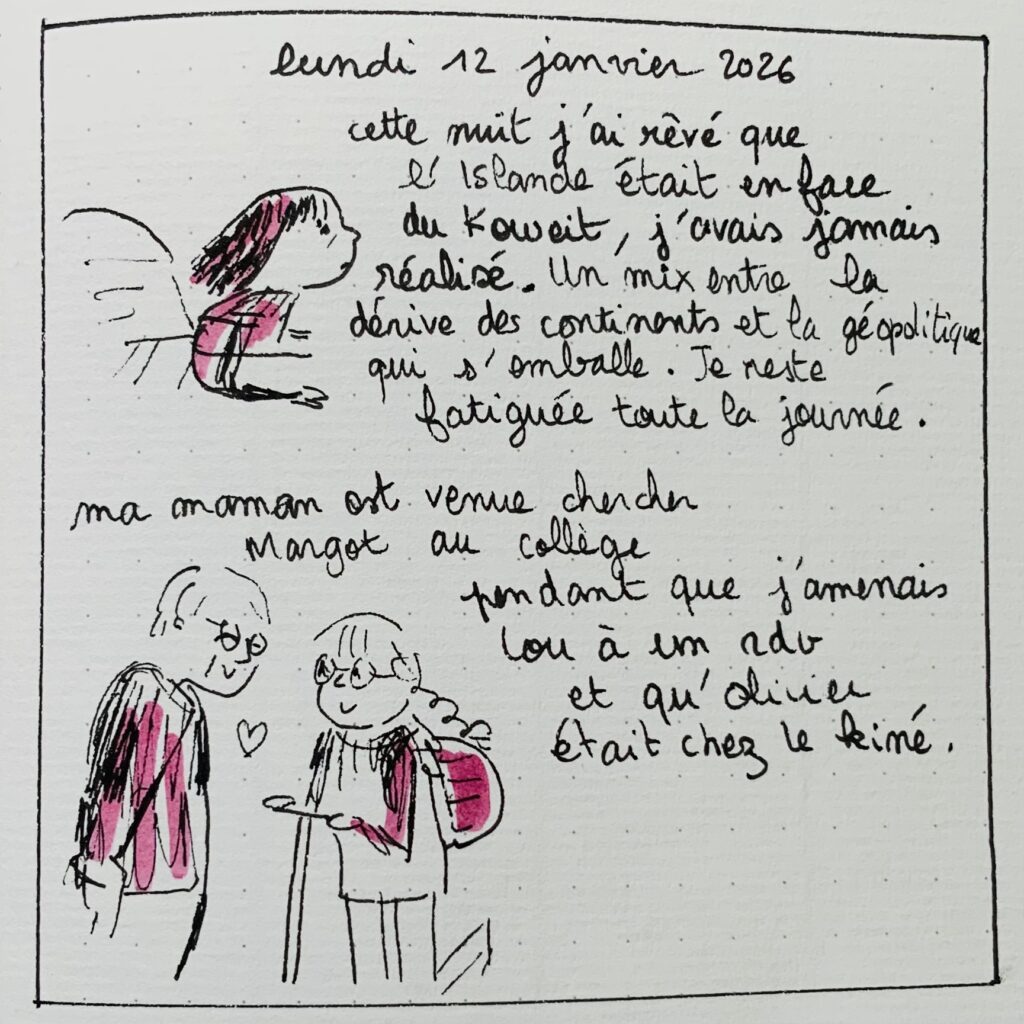 lundi 12 janvier 2026
cette nuit j'ai rêvé que
l'Islande était en face
du Koweit, j'avais jamais
réalisé. Un mix entre la
dérive des continents et la géopolitique
qui s'emballe. Je reste
fatiguée toute la journée.
ma maman est venue chercher
Margot au collège
pendant que j'amenais
Lou à un rdv
et qu'olivier
était chez le kiné.